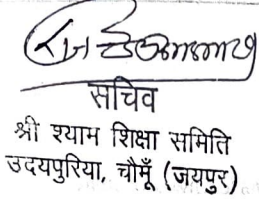 सचिव
श्री श्याम शिक्षा समिति
उदयपुरिया, चौमूँ (जयपुर)